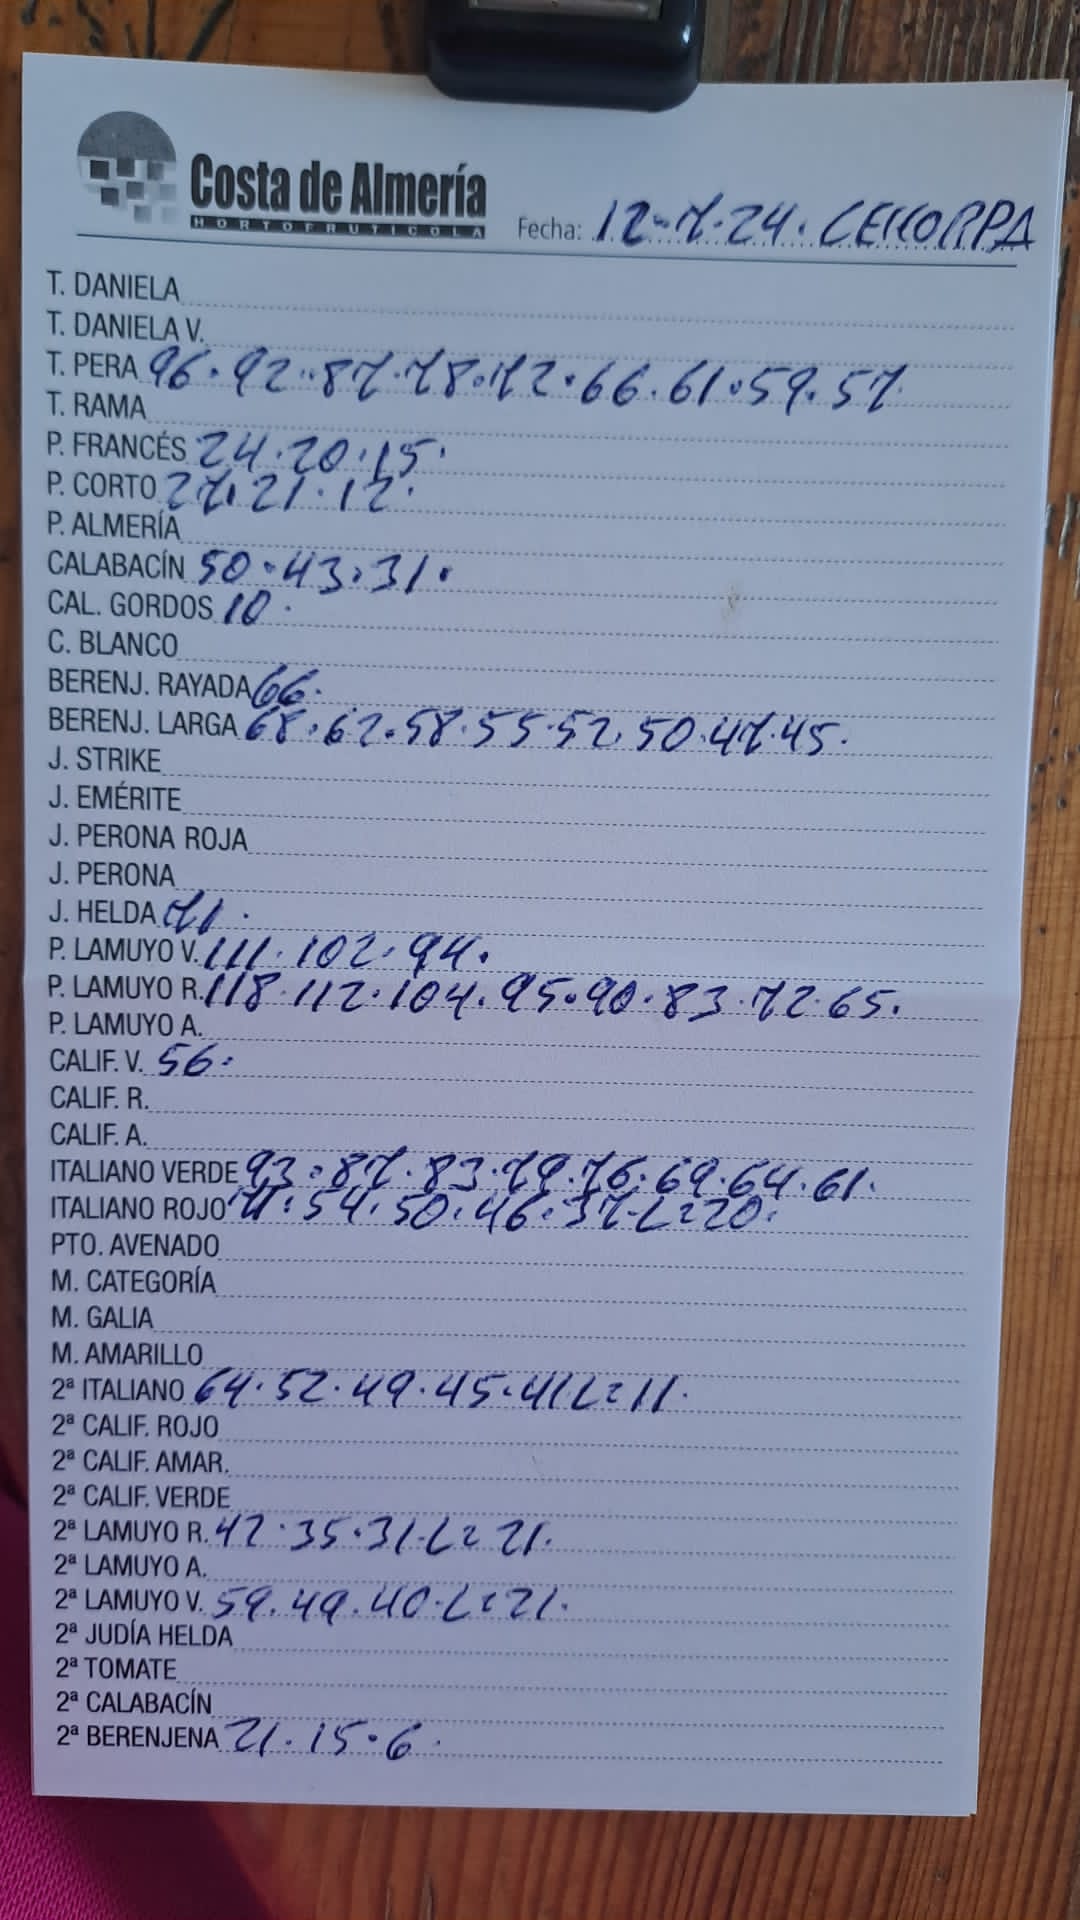 Costa de Almería
HORTOFRUTICOLA
Fecha: 12-7-24. CEHORPA
T. DANIELA
T. DANIELA V.
T. PERA 96.92.87.78.72.66.61.59.57
T. RAMA
P. FRANCÉS 24.20.15.
P. CORTO 27.21.12.
P. ALMERÍA
CALABACÍN 50.43.31.
CAL. GORDOS 10.
C. BLANCO
BERENJ. RAYADA 66.
BERENJ. LARGA 68.62.58.55.52.50.47.45.
J. STRIKE
J. EMÉRITE
J. PERONA ROJA
J. PERONA
J. HELDA 71.
P. LAMUYO V. 111.102.94.
P. LAMUYO R. 118.112.104.95.90.83.72.65.
P. LAMUYO A.
CALIF. V. 56.
CALIF. R.
CALIF. A.
ITALIANO VERDE 93.87.83.79.76.69.64.61.
ITALIANO ROJO 71.54.50.46.37-L=20.
PTO. AVENADO
M. CATEGORÍA
M. GALIA
M. AMARILLO
2ª ITALIANO 64.52.49.45.41 L=11.
2ª CALIF. ROJO
2ª CALIF. AMAR.
2ª CALIF. VERDE
2ª LAMUYO R. 42.35.31-L=21.
2ª LAMUYO A.
2ª LAMUYO V. 59.49.40-L=21.
2ª JUDÍA HELDA
2ª TOMATE
2ª CALABACÍN
2ª BERENJENA 21.15.6.